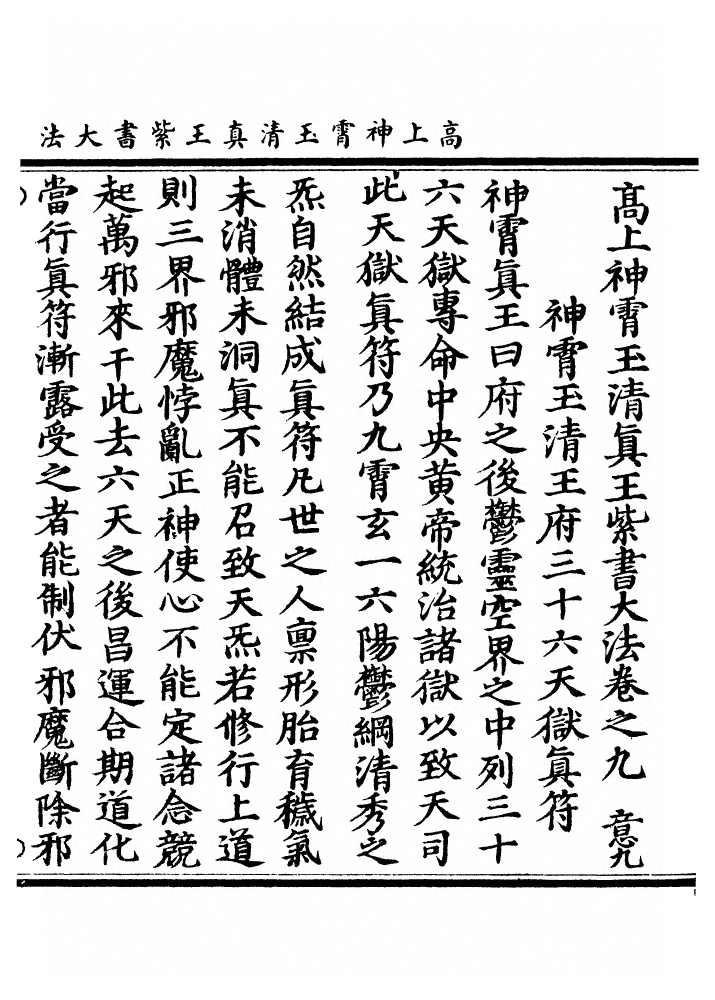 高上神霄玉清真王紫書大法
高上神霄玉清眞王紫書大法卷之九 意九
神霄玉清王府三十六天獄眞符
神霄眞王曰府之後鬱靈空界之中列三十
六天獄專命中央黄帝統治諸獄以致天司
此天獄眞符乃九霄玄一六陽鬱綱清秀之
炁自然結成眞符凡世之人禀形胎育穢氣
未消體未洞眞不能召致天炁若修行上道
則三界邪魔悖亂正神使心不能定諸念競
起萬邪來干此去六天之後昌運合期道化
當行眞符漸露受之者能制伏邪魔斷除邪